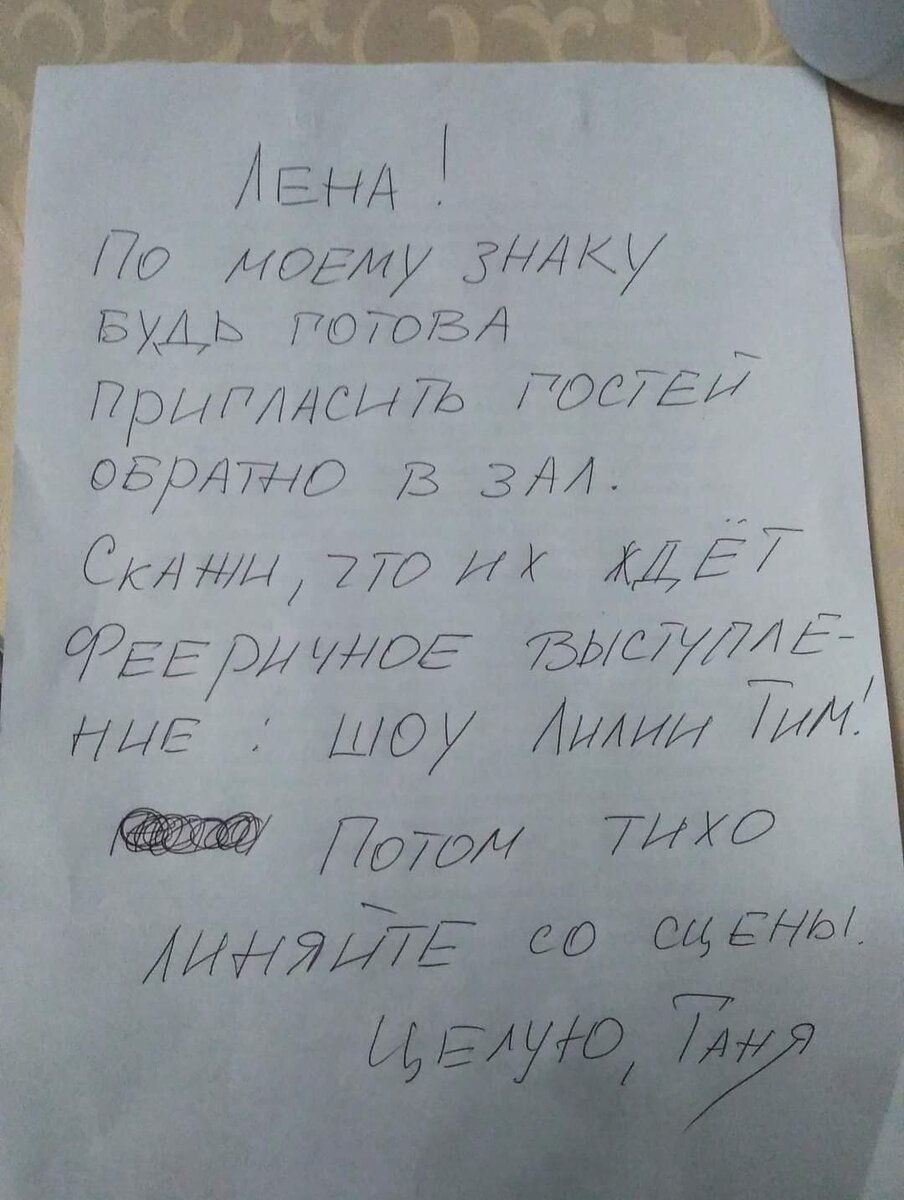 ЛЕНА!
ПО МОЕМУ ЗНАКУ
БУДЬ ГОТОВА
ПРИГЛАСИТЬ ГОСТЕЙ
ОБРАТНО В ЗАЛ.
СКАЖИ, ЧТО ИХ ЖДЁТ
ФЕЕРИЧНОЕ ВЫСТУПЛЕ-
НИЕ: ШОУ ЛИЛИИ ТИМ!
ПОТОМ ТИХО
ЛИНЯЙТЕ СО СЦЕНЫ.
ЦЕЛУЮ, ТАНЯ